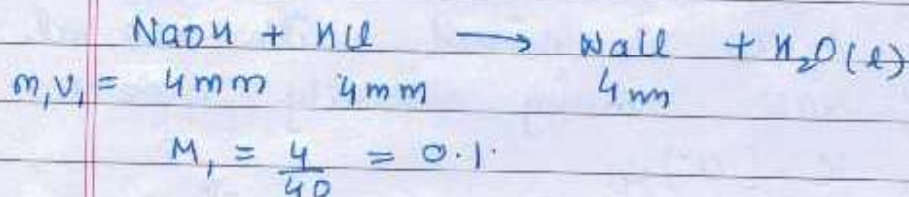 NaOH + HCl ⟶ NaCl + H₂O(l)
m₁v₁ = 4mm 4mm 4mm
M₁ = 4/40 = 0.1